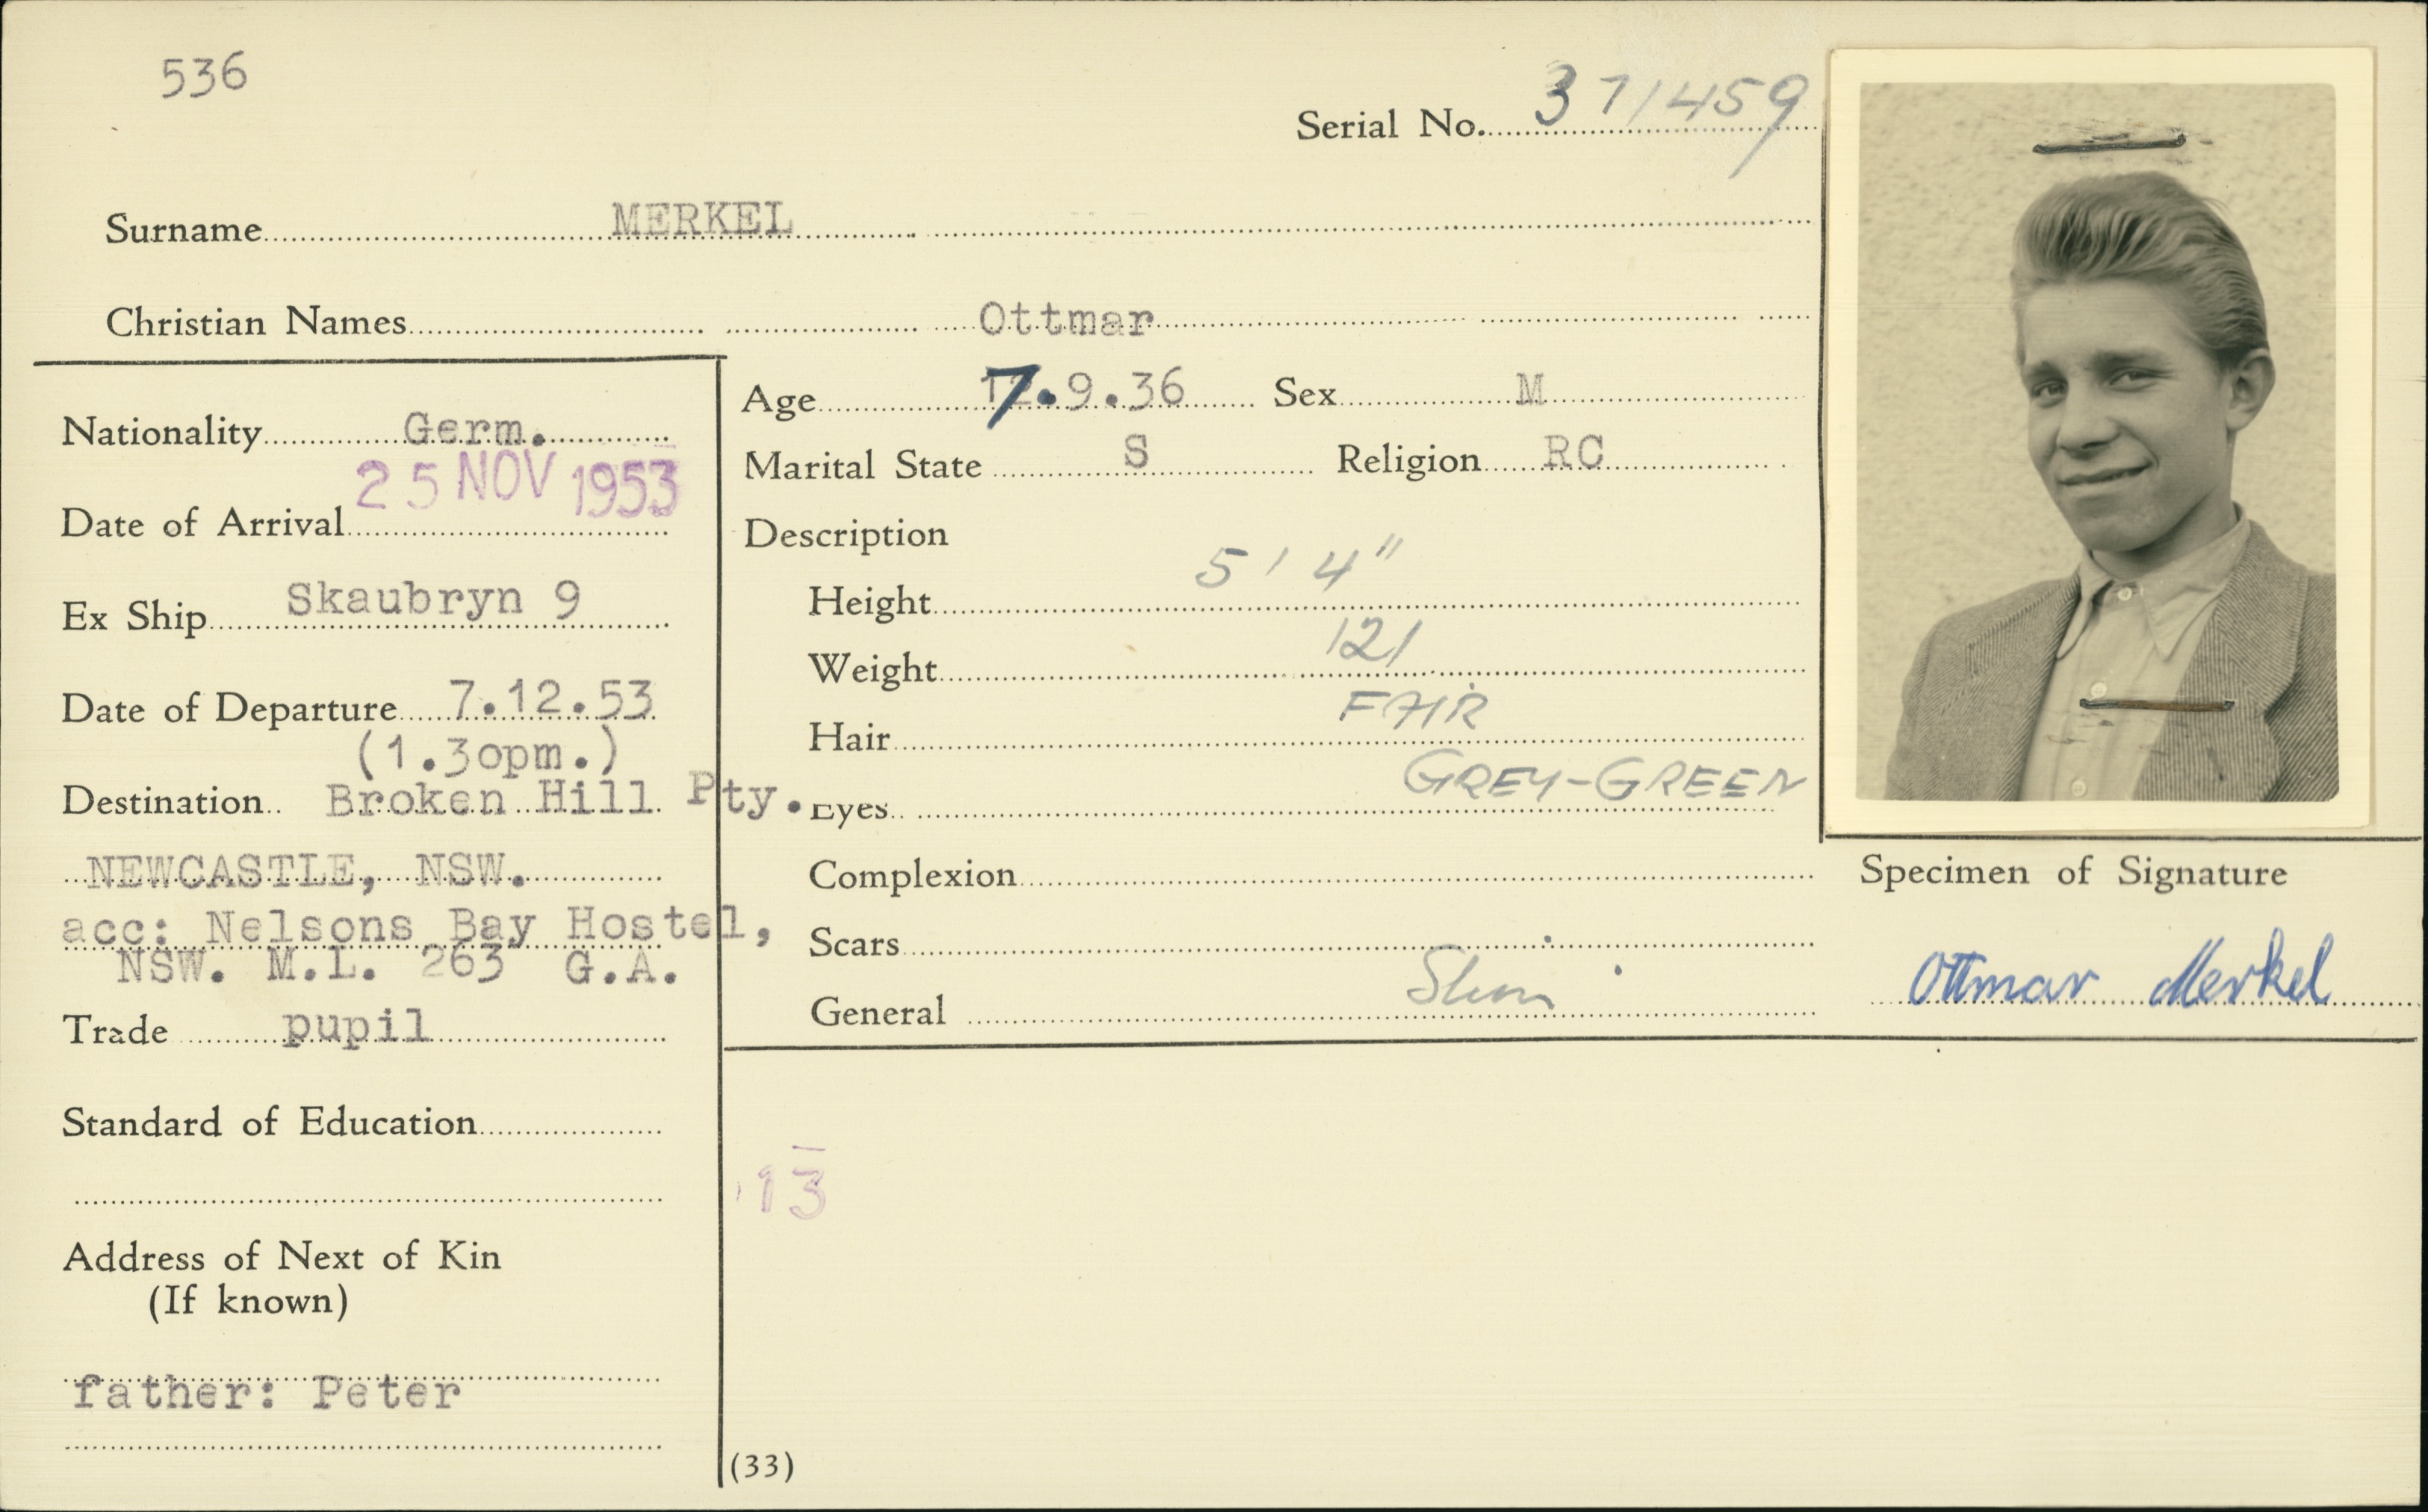 536
Serial No. 371459
Surname MERKEL
Christian Names Ottmar
Nationality Germ.
Date of Arrival 25 NOV 1953
Ex Ship Skaubryn 9
Date of Departure 7.12.53
(1.3opm.)
Destination Broken Hill Pty.
NEWCASTLE, NSW.
acc: Nelsons Bay Hostel,
NSW. M.L. 263 G.A.
Trade pupil
Standard of Education
Address of Next of Kin
(If known)
father: Peter
Age 7.9.36 Sex M
Marital State S Religion RC
Description
Height 5' 4"
Weight 121
Hair FAIR
Eyes GREY-GREEN
Complexion
Scars
General Slim
13
(33)
Specimen of Signature
Ottmar Merkel